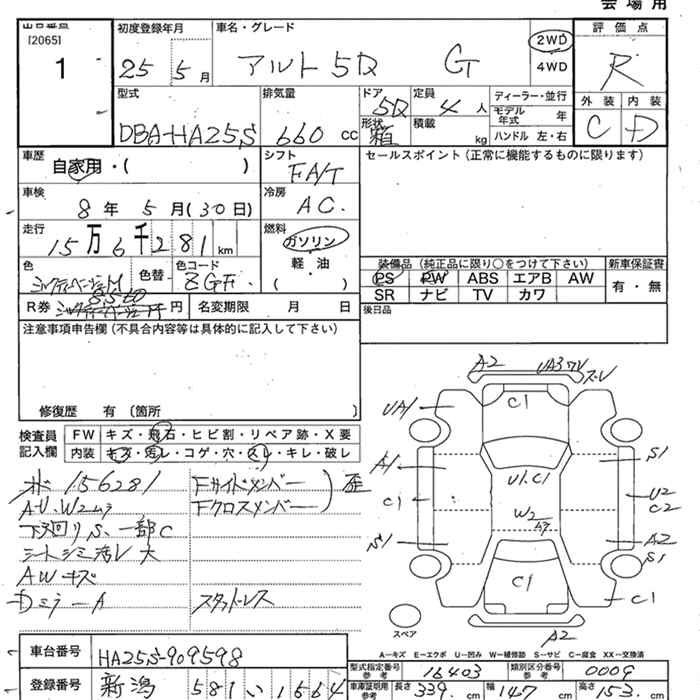 会場用
[2065]
1
初度登録年月
25 5月
車名・グレード
アルト 5D G
2WD
4WD
評価点
R
外装 内装
C D
型式
DBA-HA25S
排気量
660 cc
ドア
5D
形状
箱
定員
4 人
積載
kg
ディーラー・並行
モデル年式 年
ハンドル 左・右
車歴
自家用・( )
シフト
FA/T
セールスポイント(正常に機能するものに限ります)
車検
8年 5月(30日)
冷房
AC
走行
15万6千281km
燃料
ガソリン
軽・油
( )
色
色替
色コード
ZGF
装備品(純正品に限り○をつけて下さい)
PS PW ABS エアB AW
SR ナビ TV カワ
新車保証書
有・無
R券
8,560
円
名変期限 月 日
後日品
注意事項申告欄(不具合内容等は具体的に記入して下さい)
修復歴 有 〔箇所 〕
検査員記入欄
FW キズ・飛石・ヒビ割・リペア跡・X要
内装 キズ・汚レ・コゲ・穴・スレ・キレ・破レ
156281
AU、W2ムラ
下廻りS、一部C
シートシミ汚レ大
AWキズ
DミラーA
Fサイドメンバー
Fクロスメンバー
歪
スタッドレス
A2
C1
UA1
A1
S1
C1
U1.C1
U2
C2
W2
S1
A2
S1
C1
C1
A2
スペア
A-キズ E-エクボ U-凹み W-補修跡 S-サビ C-腐食 XX-交換済
車台番号
HA25S-909598
登録番号
新潟 581 い 1564
型式指定番号 参考
16403
類別区分番号 参考
0009
車庫証明用 参考
長さ 339
幅 147
高さ 153